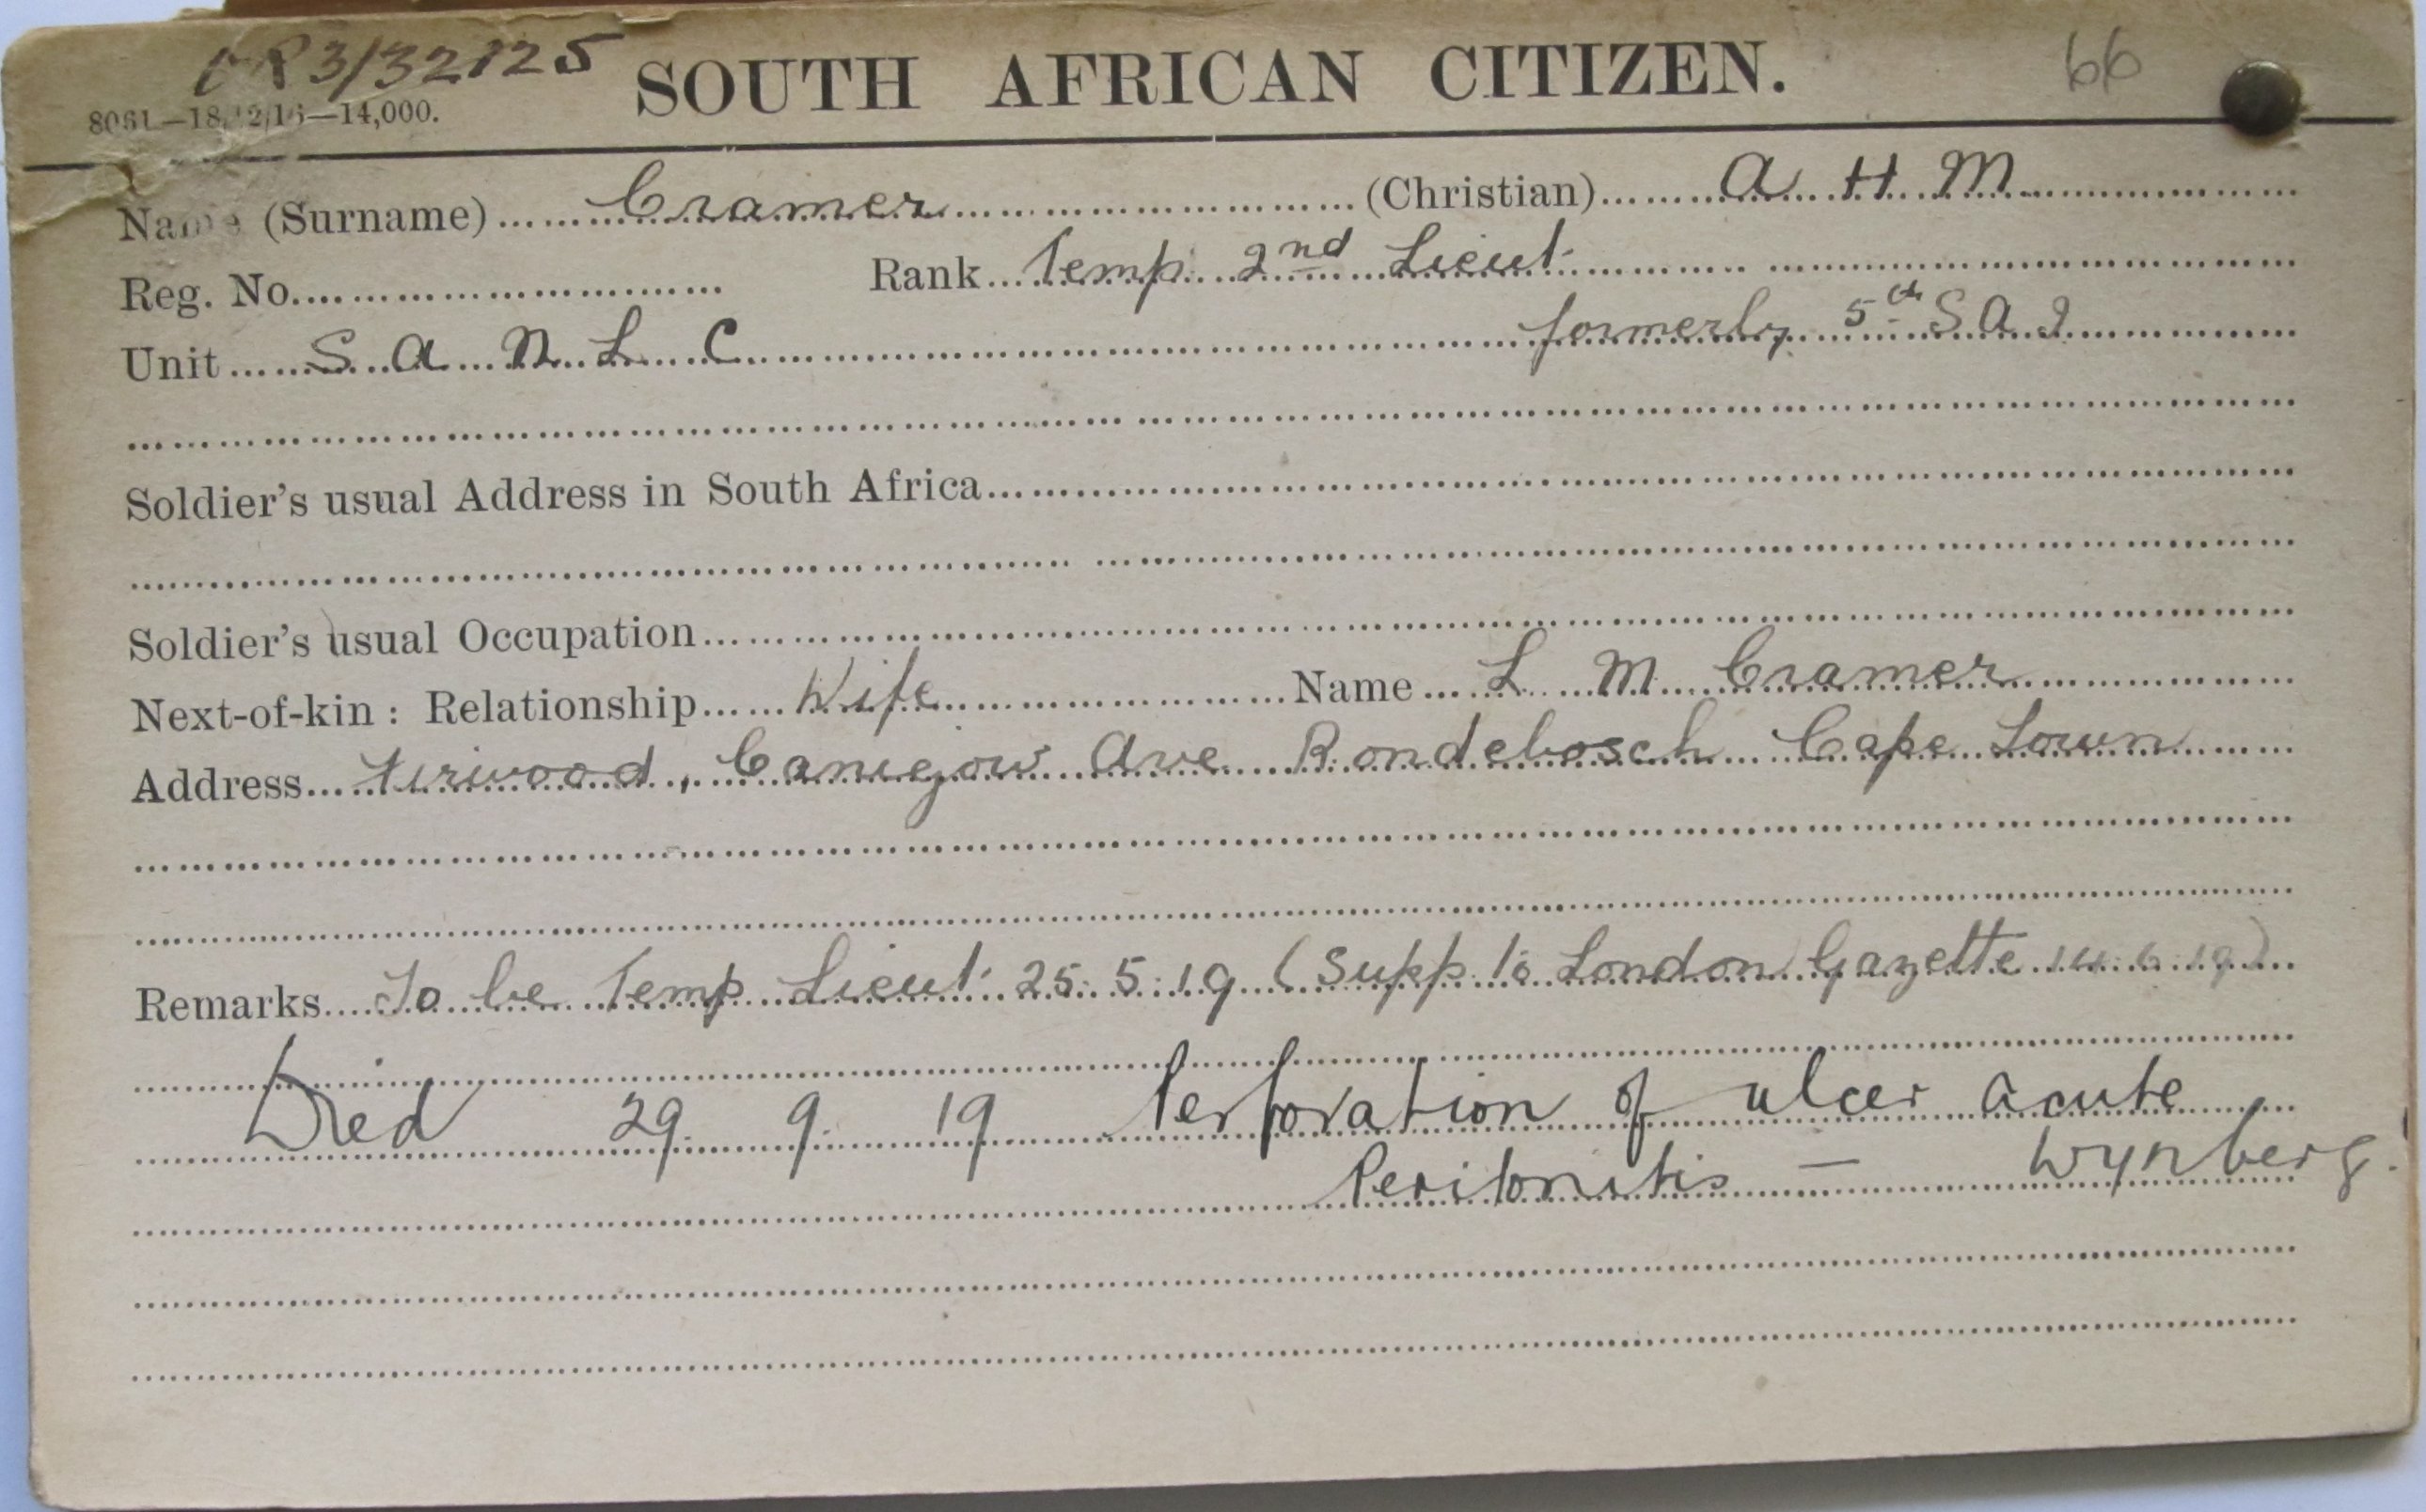 CR3/32125 SOUTH AFRICAN CITIZEN. 66
8061—18/12/16—14,000.
Name (Surname) Cramer (Christian) A H M
Reg. No. Rank Temp 2nd Lieut
Unit S A N L C formerly 5th S A I
Soldier's usual Address in South Africa
Soldier's usual Occupation
Next-of-kin : Relationship Wife Name L M Cramer
Address Ave Rondebosch Cape Town
Remarks To be Temp Lieut 25.5.19 (Supp to London Gazette 14.6.19)
Died 29 9 19 Perforation of ulcer acute
Peritonitis — Wynberg.